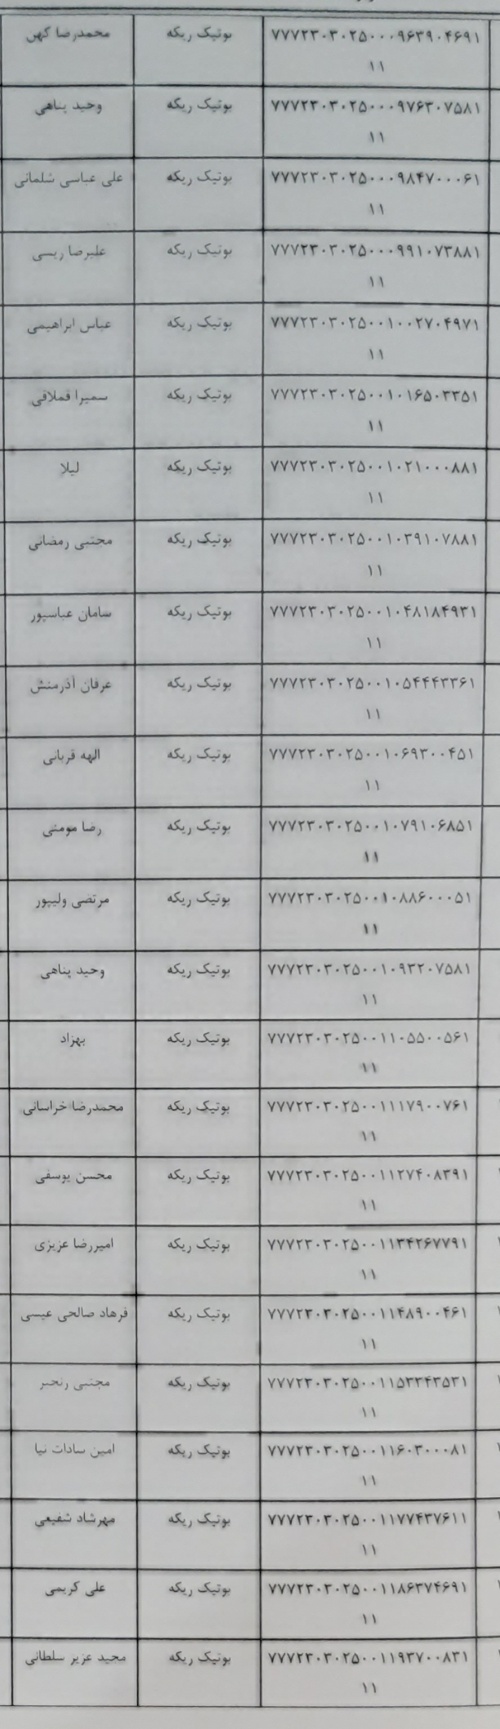 ۷۷۷۲۳۰۳۰۲۵۰۰۰۹۶۳۹۰۴۶۹۱ بوتیک ریکه محمدرضا کهن
۱۱
۷۷۷۲۳۰۳۰۲۵۰۰۰۹۷۶۳۰۷۵۸۱ بوتیک ریکه وحید پناهی
۱۱
۷۷۷۲۳۰۳۰۲۵۰۰۰۹۸۴۷۰۰۰۶۱ بوتیک ریکه علی عباسی شلمانی
۱۱
۷۷۷۲۳۰۳۰۲۵۰۰۰۹۹۱۰۷۳۸۸۱ بوتیک ریکه علیرضا ریسی
۱۱
۷۷۷۲۳۰۳۰۲۵۰۰۱۰۰۲۷۰۴۹۷۱ بوتیک ریکه عباس ابراهیمی
۱۱
۷۷۷۲۳۰۳۰۲۵۰۰۱۰۱۶۵۰۳۳۵۱ بوتیک ریکه سمیرا قملاقی
۱۱
۷۷۷۲۳۰۳۰۲۵۰۰۱۰۲۱۰۰۰۸۸۱ بوتیک ریکه لیلا
۱۱
۷۷۷۲۳۰۳۰۲۵۰۰۱۰۳۹۱۰۷۸۸۱ بوتیک ریکه مجتبی رمضانی
۱۱
۷۷۷۲۳۰۳۰۲۵۰۰۱۰۴۸۱۸۴۹۳۱ بوتیک ریکه سامان عباسپور
۱۱
۷۷۷۲۳۰۳۰۲۵۰۰۱۰۵۴۴۴۳۳۶۱ بوتیک ریکه عرفان آذرمنش
۱۱
۷۷۷۲۳۰۳۰۲۵۰۰۱۰۶۹۳۰۰۴۵۱ بوتیک ریکه الهه قربانی
۱۱
۷۷۷۲۳۰۳۰۲۵۰۰۱۰۷۹۱۰۶۸۵۱ بوتیک ریکه رضا مومنی
۱۱
۷۷۷۲۳۰۳۰۲۵۰۰۱۰۸۸۶۰۰۰۵۱ بوتیک ریکه مرتضی ولیپور
۱۱
۷۷۷۲۳۰۳۰۲۵۰۰۱۰۹۳۲۰۷۵۸۱ بوتیک ریکه وحید پناهی
۱۱
۷۷۷۲۳۰۳۰۲۵۰۰۱۱۰۵۵۰۰۵۶۱ بوتیک ریکه بهزاد
۱۱
۷۷۷۲۳۰۳۰۲۵۰۰۱۱۱۷۹۰۰۷۶۱ بوتیک ریکه محمدرضا خراسانی
۱۱
۷۷۷۲۳۰۳۰۲۵۰۰۱۱۲۷۴۰۸۳۹۱ بوتیک ریکه محسن یوسفی
۱۱
۷۷۷۲۳۰۳۰۲۵۰۰۱۱۳۴۲۶۷۷۹۱ بوتیک ریکه امیررضا عزیزی
۱۱
۷۷۷۲۳۰۳۰۲۵۰۰۱۱۴۸۹۰۰۴۶۱ بوتیک ریکه فرهاد صالحی عیسی
۱۱
۷۷۷۲۳۰۳۰۲۵۰۰۱۱۵۳۳۴۳۵۳۱ بوتیک ریکه مجتبی رنجبر
۱۱
۷۷۷۲۳۰۳۰۲۵۰۰۱۱۶۰۳۰۰۰۸۱ بوتیک ریکه امین سادات نیا
۱۱
۷۷۷۲۳۰۳۰۲۵۰۰۱۱۷۷۴۳۷۶۱۱ بوتیک ریکه مهرشاد شفیعی
۱۱
۷۷۷۲۳۰۳۰۲۵۰۰۱۱۸۶۳۷۴۶۹۱ بوتیک ریکه علی کریمی
۱۱
۷۷۷۲۳۰۳۰۲۵۰۰۱۱۹۳۷۰۰۸۳۱ بوتیک ریکه مجید عزیز سلطانی
۱۱